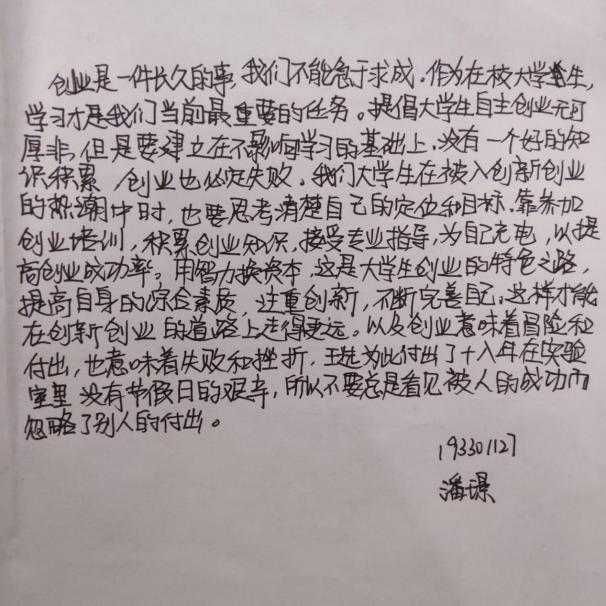 创业是一件长久的事,我们不能急于求成。作为在校大学生,
学习才是我们当前最重要的任务。提倡大学生自主创业无可
厚非,但是要建立在不影响学习的基础上,没有一个好的知
识积累 创业也必定失败。我们大学生在投入创新创业
的热潮中时,也要思考清楚自己的定位和目标。靠参加
创业培训,积累创业知识,接受专业指导,为自己充电,以提
高创业成功率。用智力换资本,这是大学生创业的特色之路,
提高自身的综合素质,注重创新,不断完善自己,这样才能
在创新创业的道路上走得更远。以及创业意味着冒险和
付出,也意味着失败和挫折,王选为此付出了十八年在实验
室里没有节假日的艰辛,所以不要总是看见被人的成功而
忽略了别人的付出。
193301127
潘璟